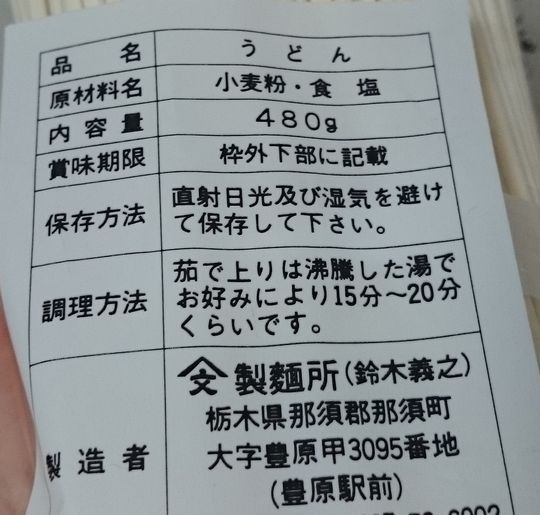 品名 うどん
原材料名 小麦粉・食塩
内容量 480g
賞味期限 枠外下部に記載
保存方法 直射日光及び湿気を避け
て保存して下さい。
調理方法 茄で上りは沸騰した湯で
お好みにより15分〜20分
くらいです。
製造者 文製麺所(鈴木義之)
栃木県那須郡那須町
大字豊原甲3095番地
(豊原駅前)